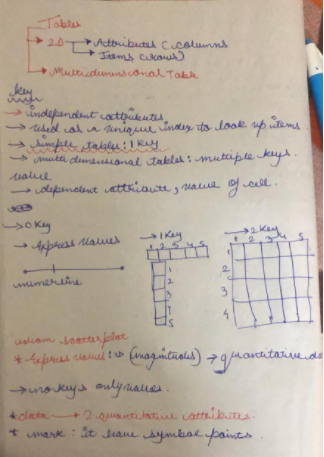 Tables
→ 2D → Attributes (columns
→ Items (rows)
→ Multidimensional Table
Key
→ independent attributes
→ used as a unique index to look up items.
→ Simple tables : 1 key
→ multi dimensional tables : multiple keys.
value
→ dependent attribute, value of cell.
→ 0 Key → 1 Key → 2 Key
→ Express values
1 2 3 4 5
1 2 3 4 5
1
2
3
4
5
1
2
3
4
numerline
scatterplot
* Express values : → (magnitudes) → quantitative da
→ no keys only values.
* data → 2 quantitative attributes.
* mark : it have symbol points.